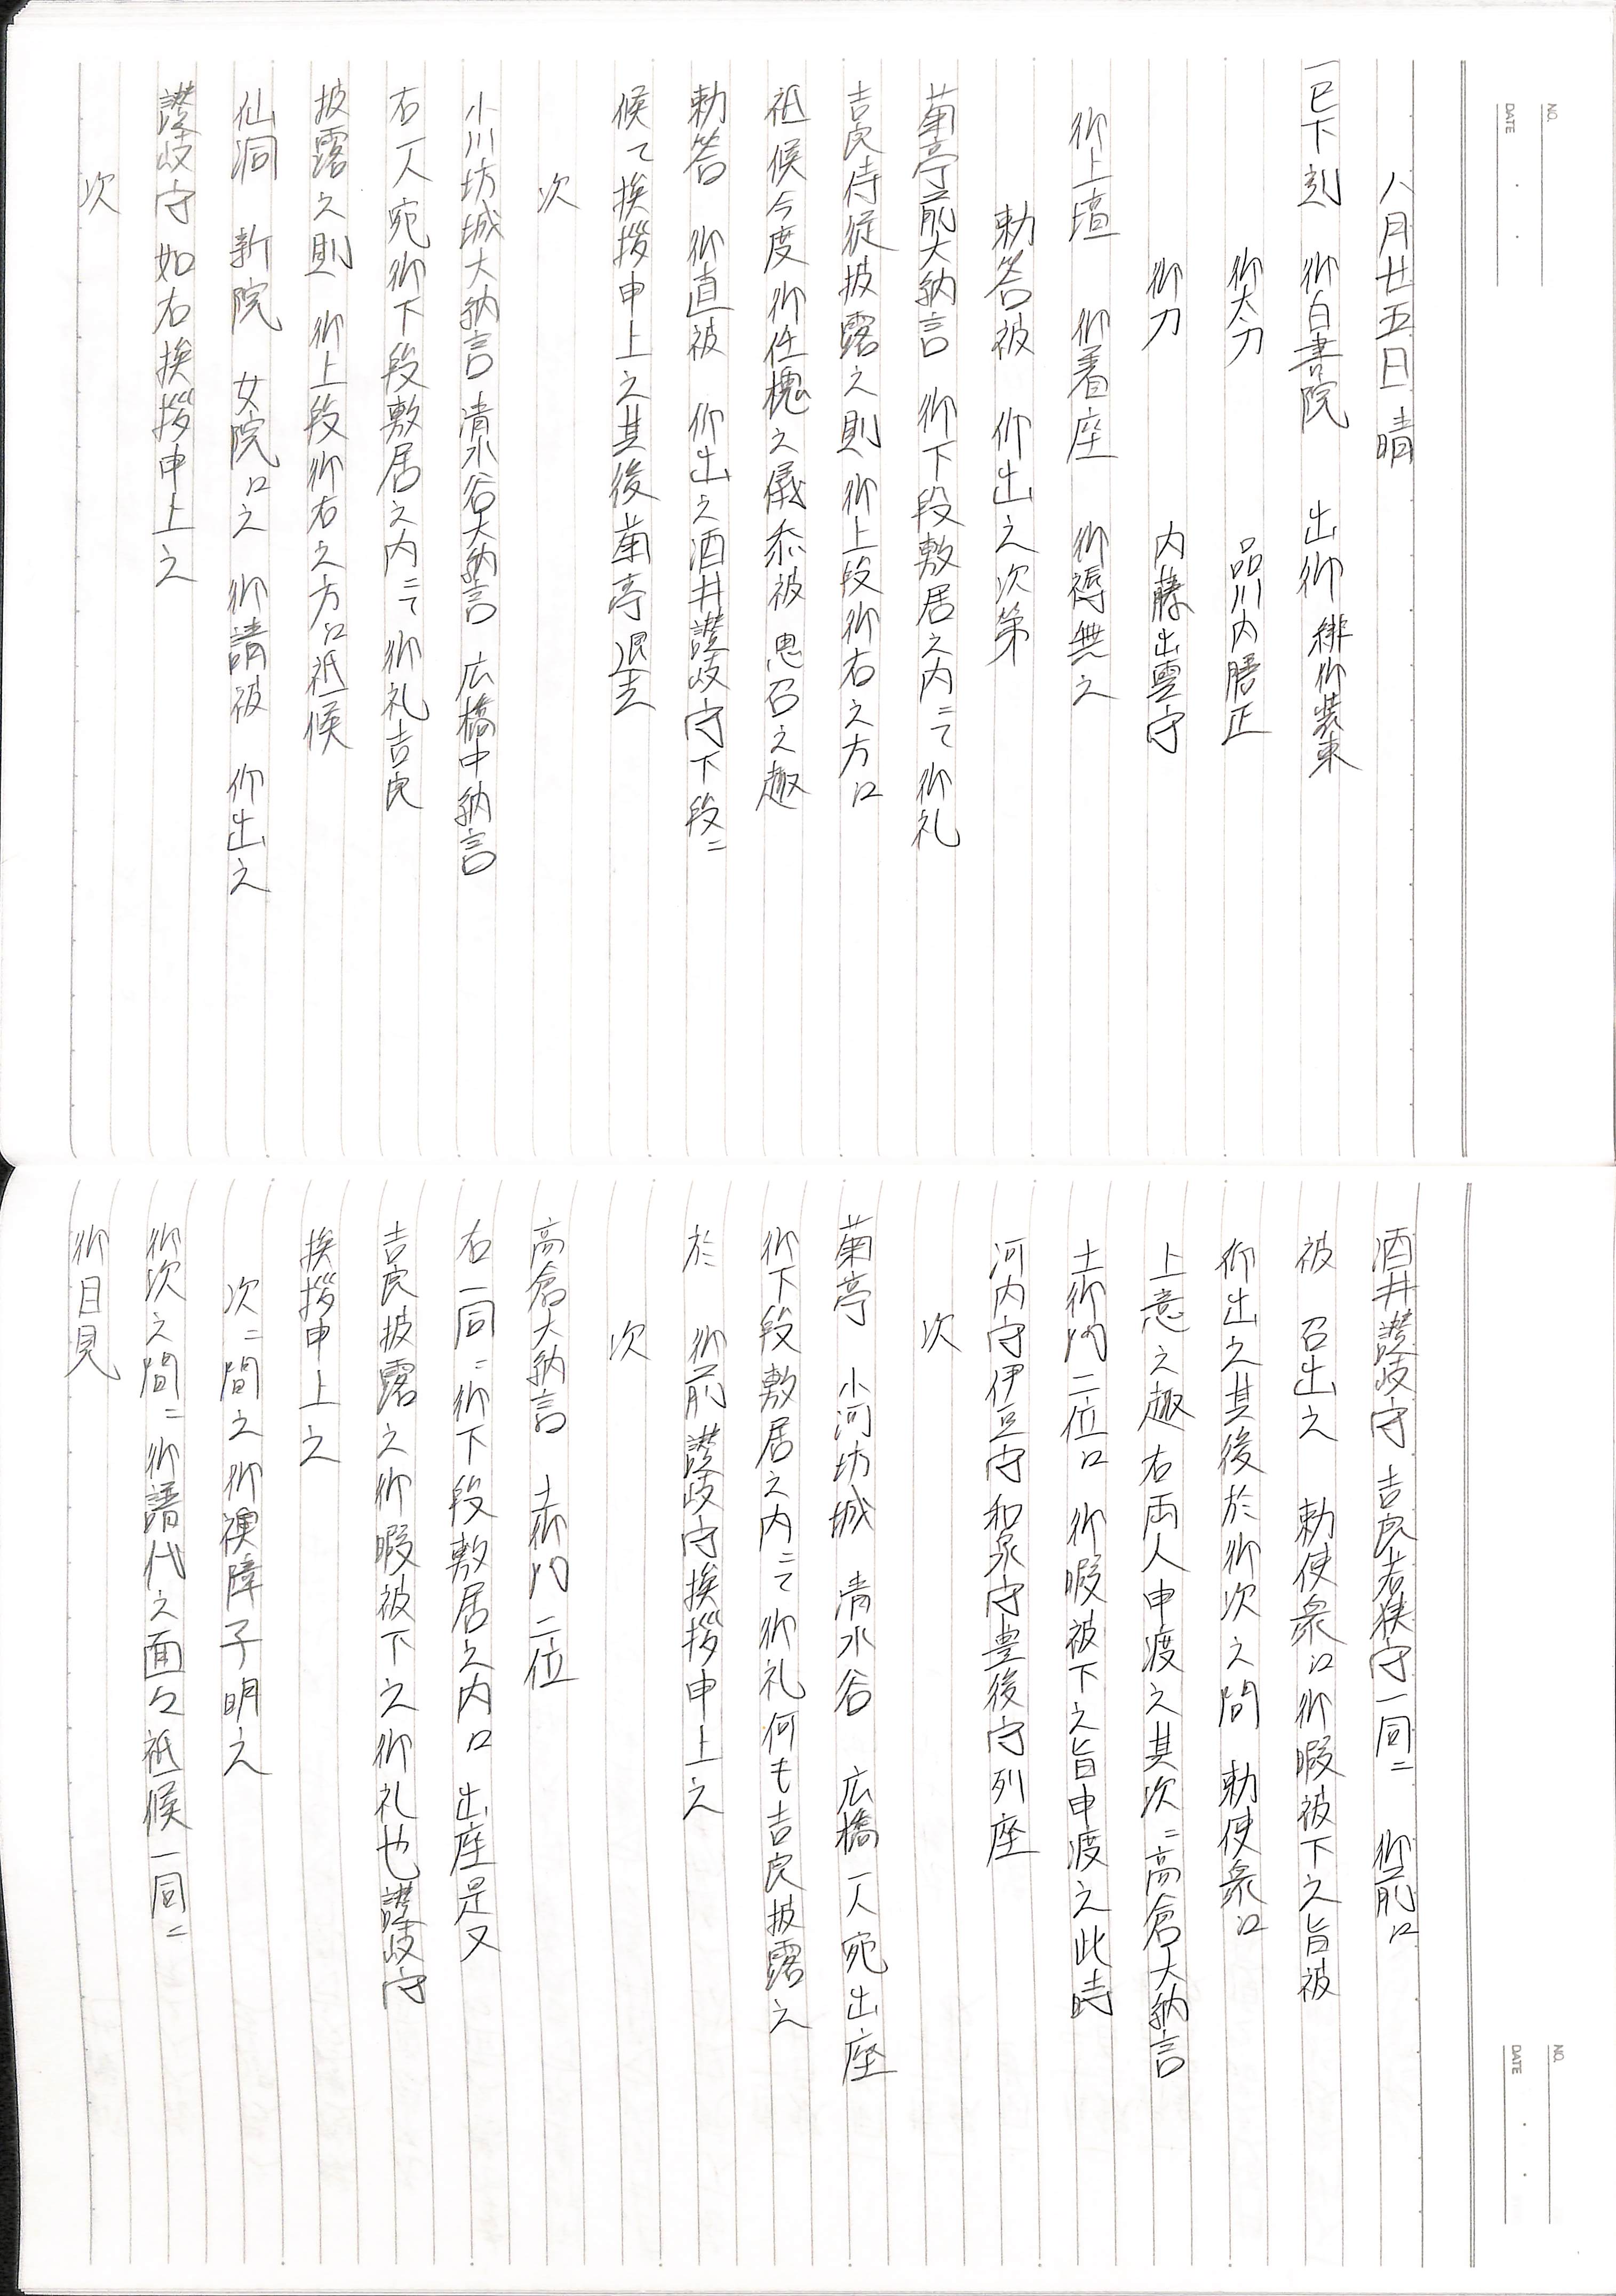 NO.
DATE
八月廿五日 晴
一巳下刻 御白書院 出御 緋御装束
御太刀 品川内膳正
御刀 内藤出雲守
御上壇 御着座 御褥無之
勅答被 仰出之次第
菊亭前大納言 御下段敷居之内ニて御礼
吉良侍従披露之則 御上段御右之方江
祗候今度 御任槐之儀忝被 思召之趣
勅答 御直被 仰出之酒井讃岐守下段ニ
候て挨拶申上之其後菊亭退去
次
小川坊城大納言 清水谷大納言 広橋中納言
右一人宛御下段敷居之内ニて御礼吉良
披露之則 御上段御右之方江祗候
仙洞 新院 女院江之 御請被 仰出之
讃岐守如右挨拶申上之
次
NO.
DATE
酒井讃岐守 吉良若狭守一同ニ 御前江
被 召出之 勅使衆江御暇被下之旨被
仰出之其後於御次之間 勅使衆江
上意之趣右両人申渡之其次ニ高倉大納言
土御門二位江 御暇被下之旨申渡之此時
河内守伊豆守和泉守豊後守列座
次
菊亭 小河坊城 清水谷 広橋一人宛出座
御下段敷居之内ニて御礼何も吉良披露之
於 御前讃岐守挨拶申上之
次
高倉大納言 土御門二位
右一同ニ御下段敷居之内江 出座是又
吉良披露之御暇被下之御礼也讃岐守
挨拶申上之
次ニ間之御襖障子明之
御次之間ニ御譜代之面々祗候一同ニ
御目見